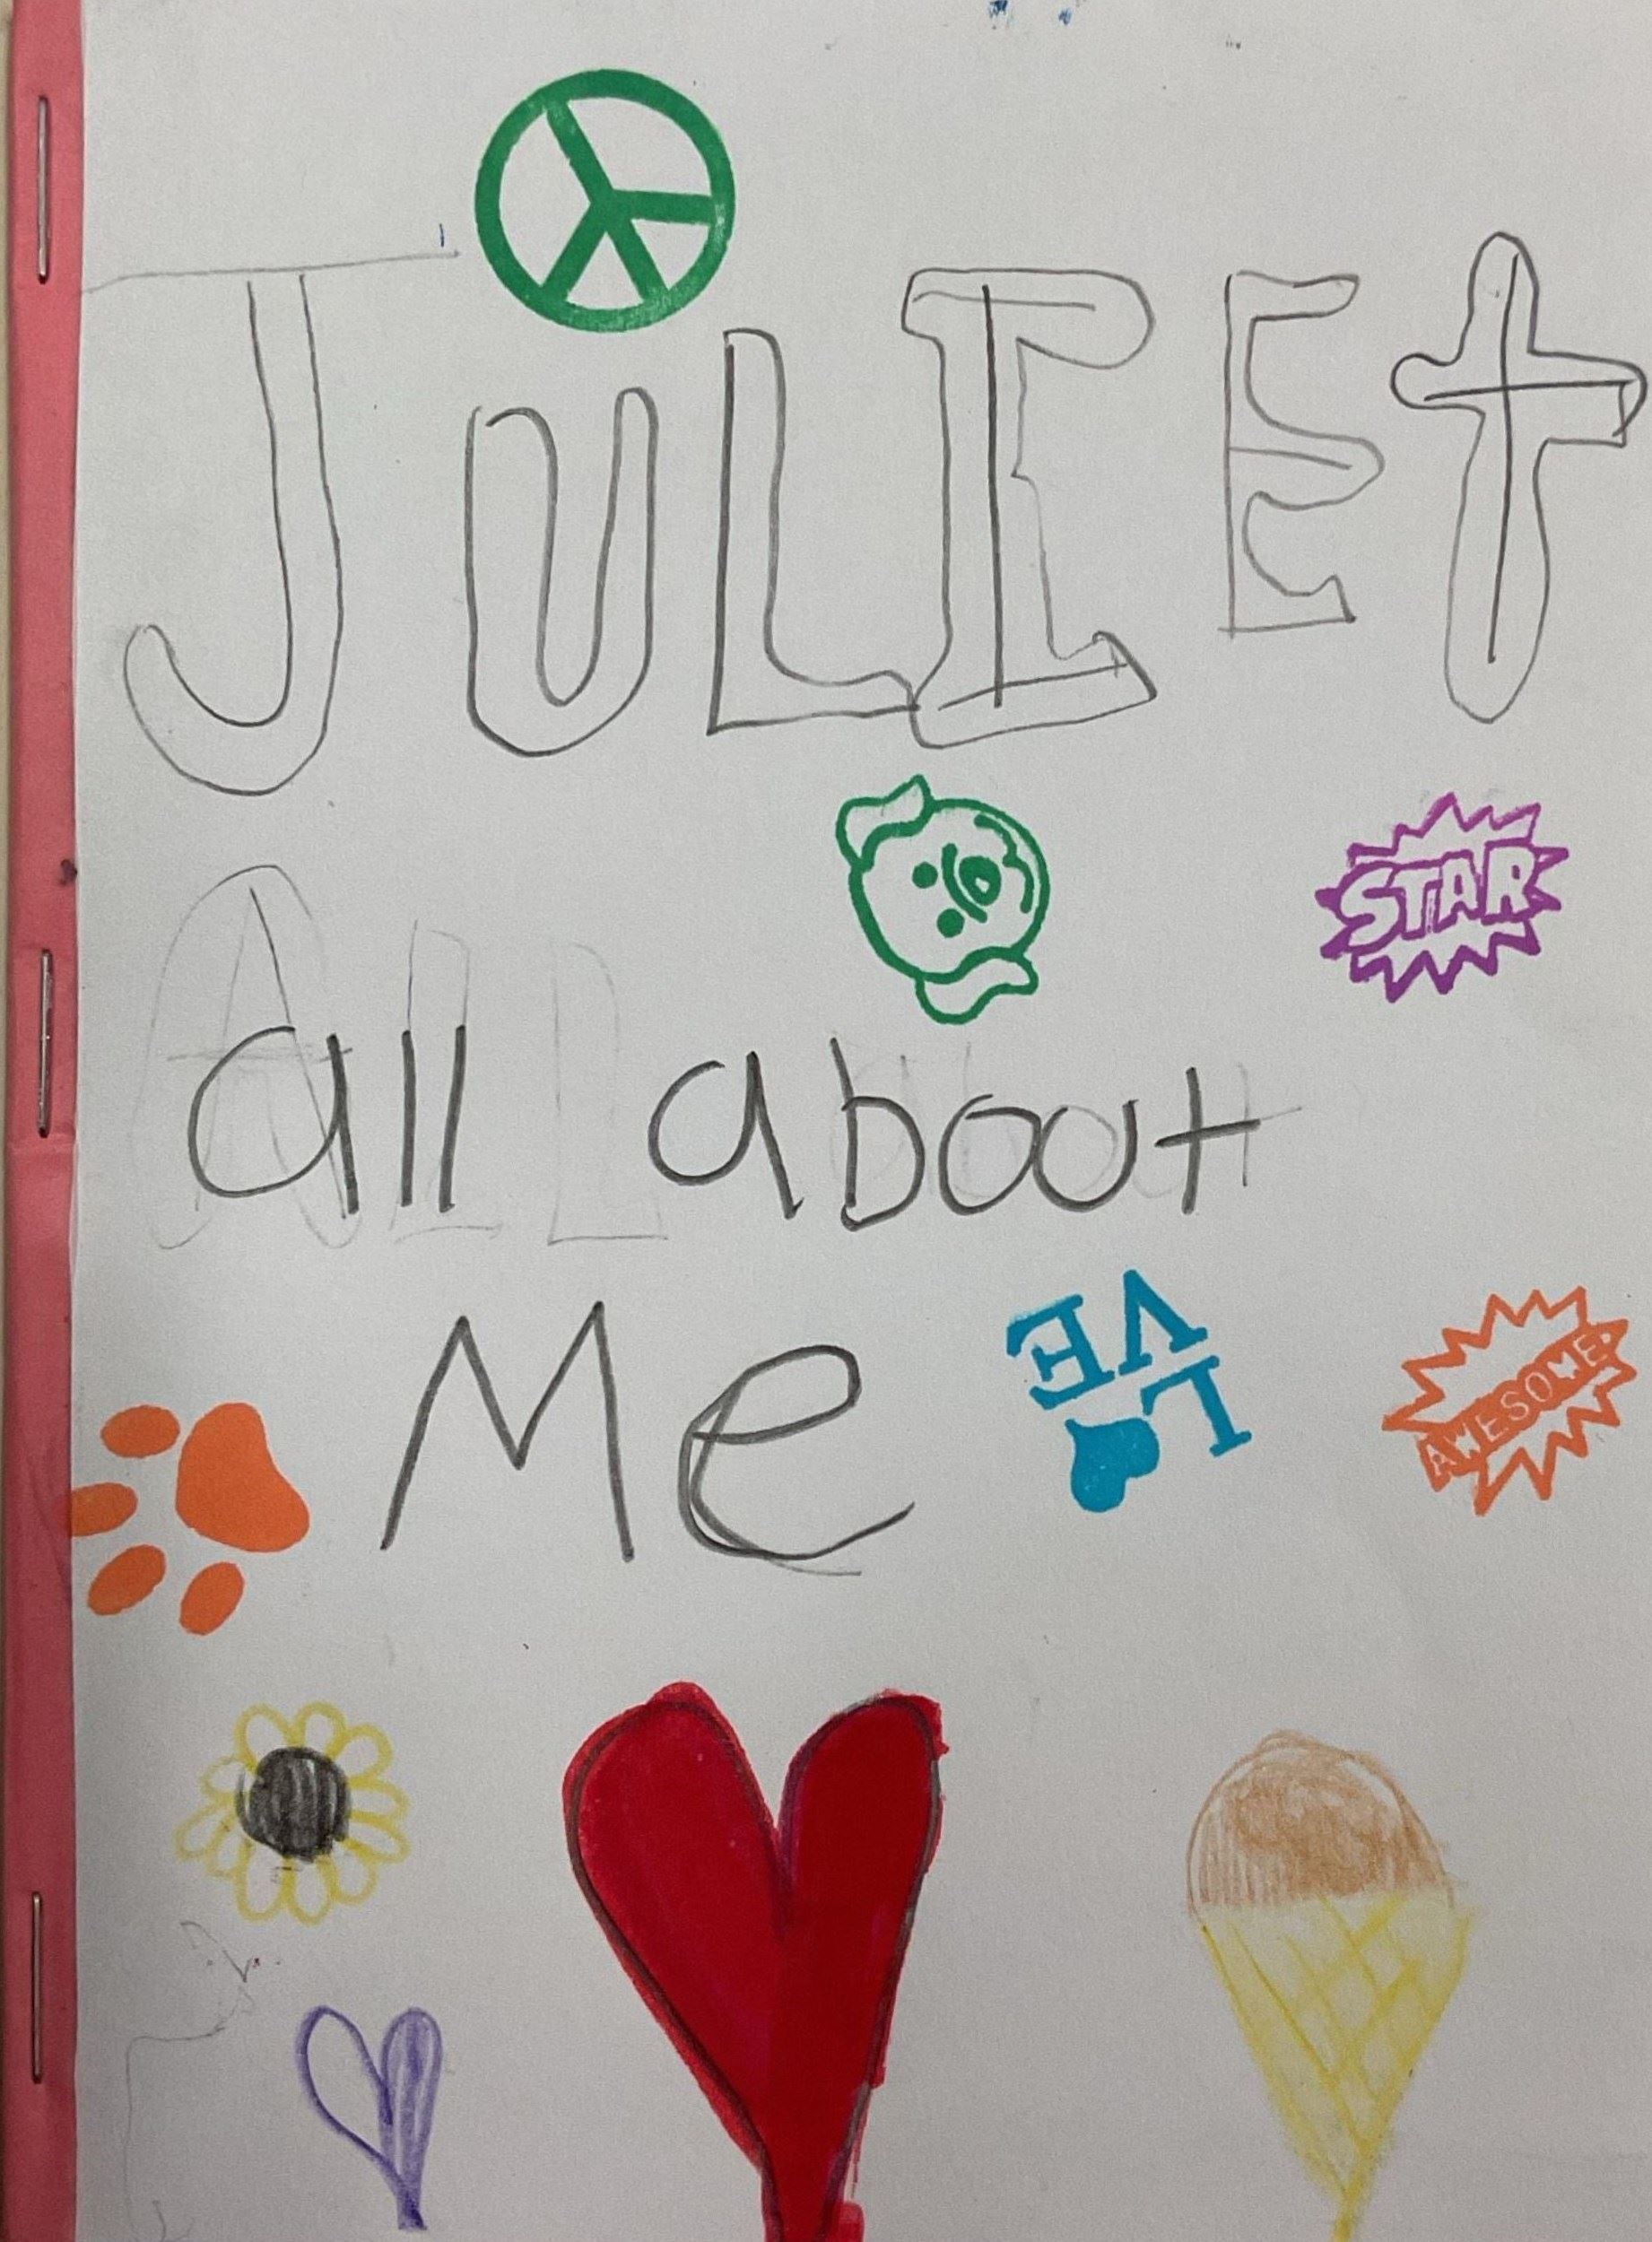 JULIEt
STAR
all about
Me
LOVE
AWESOME